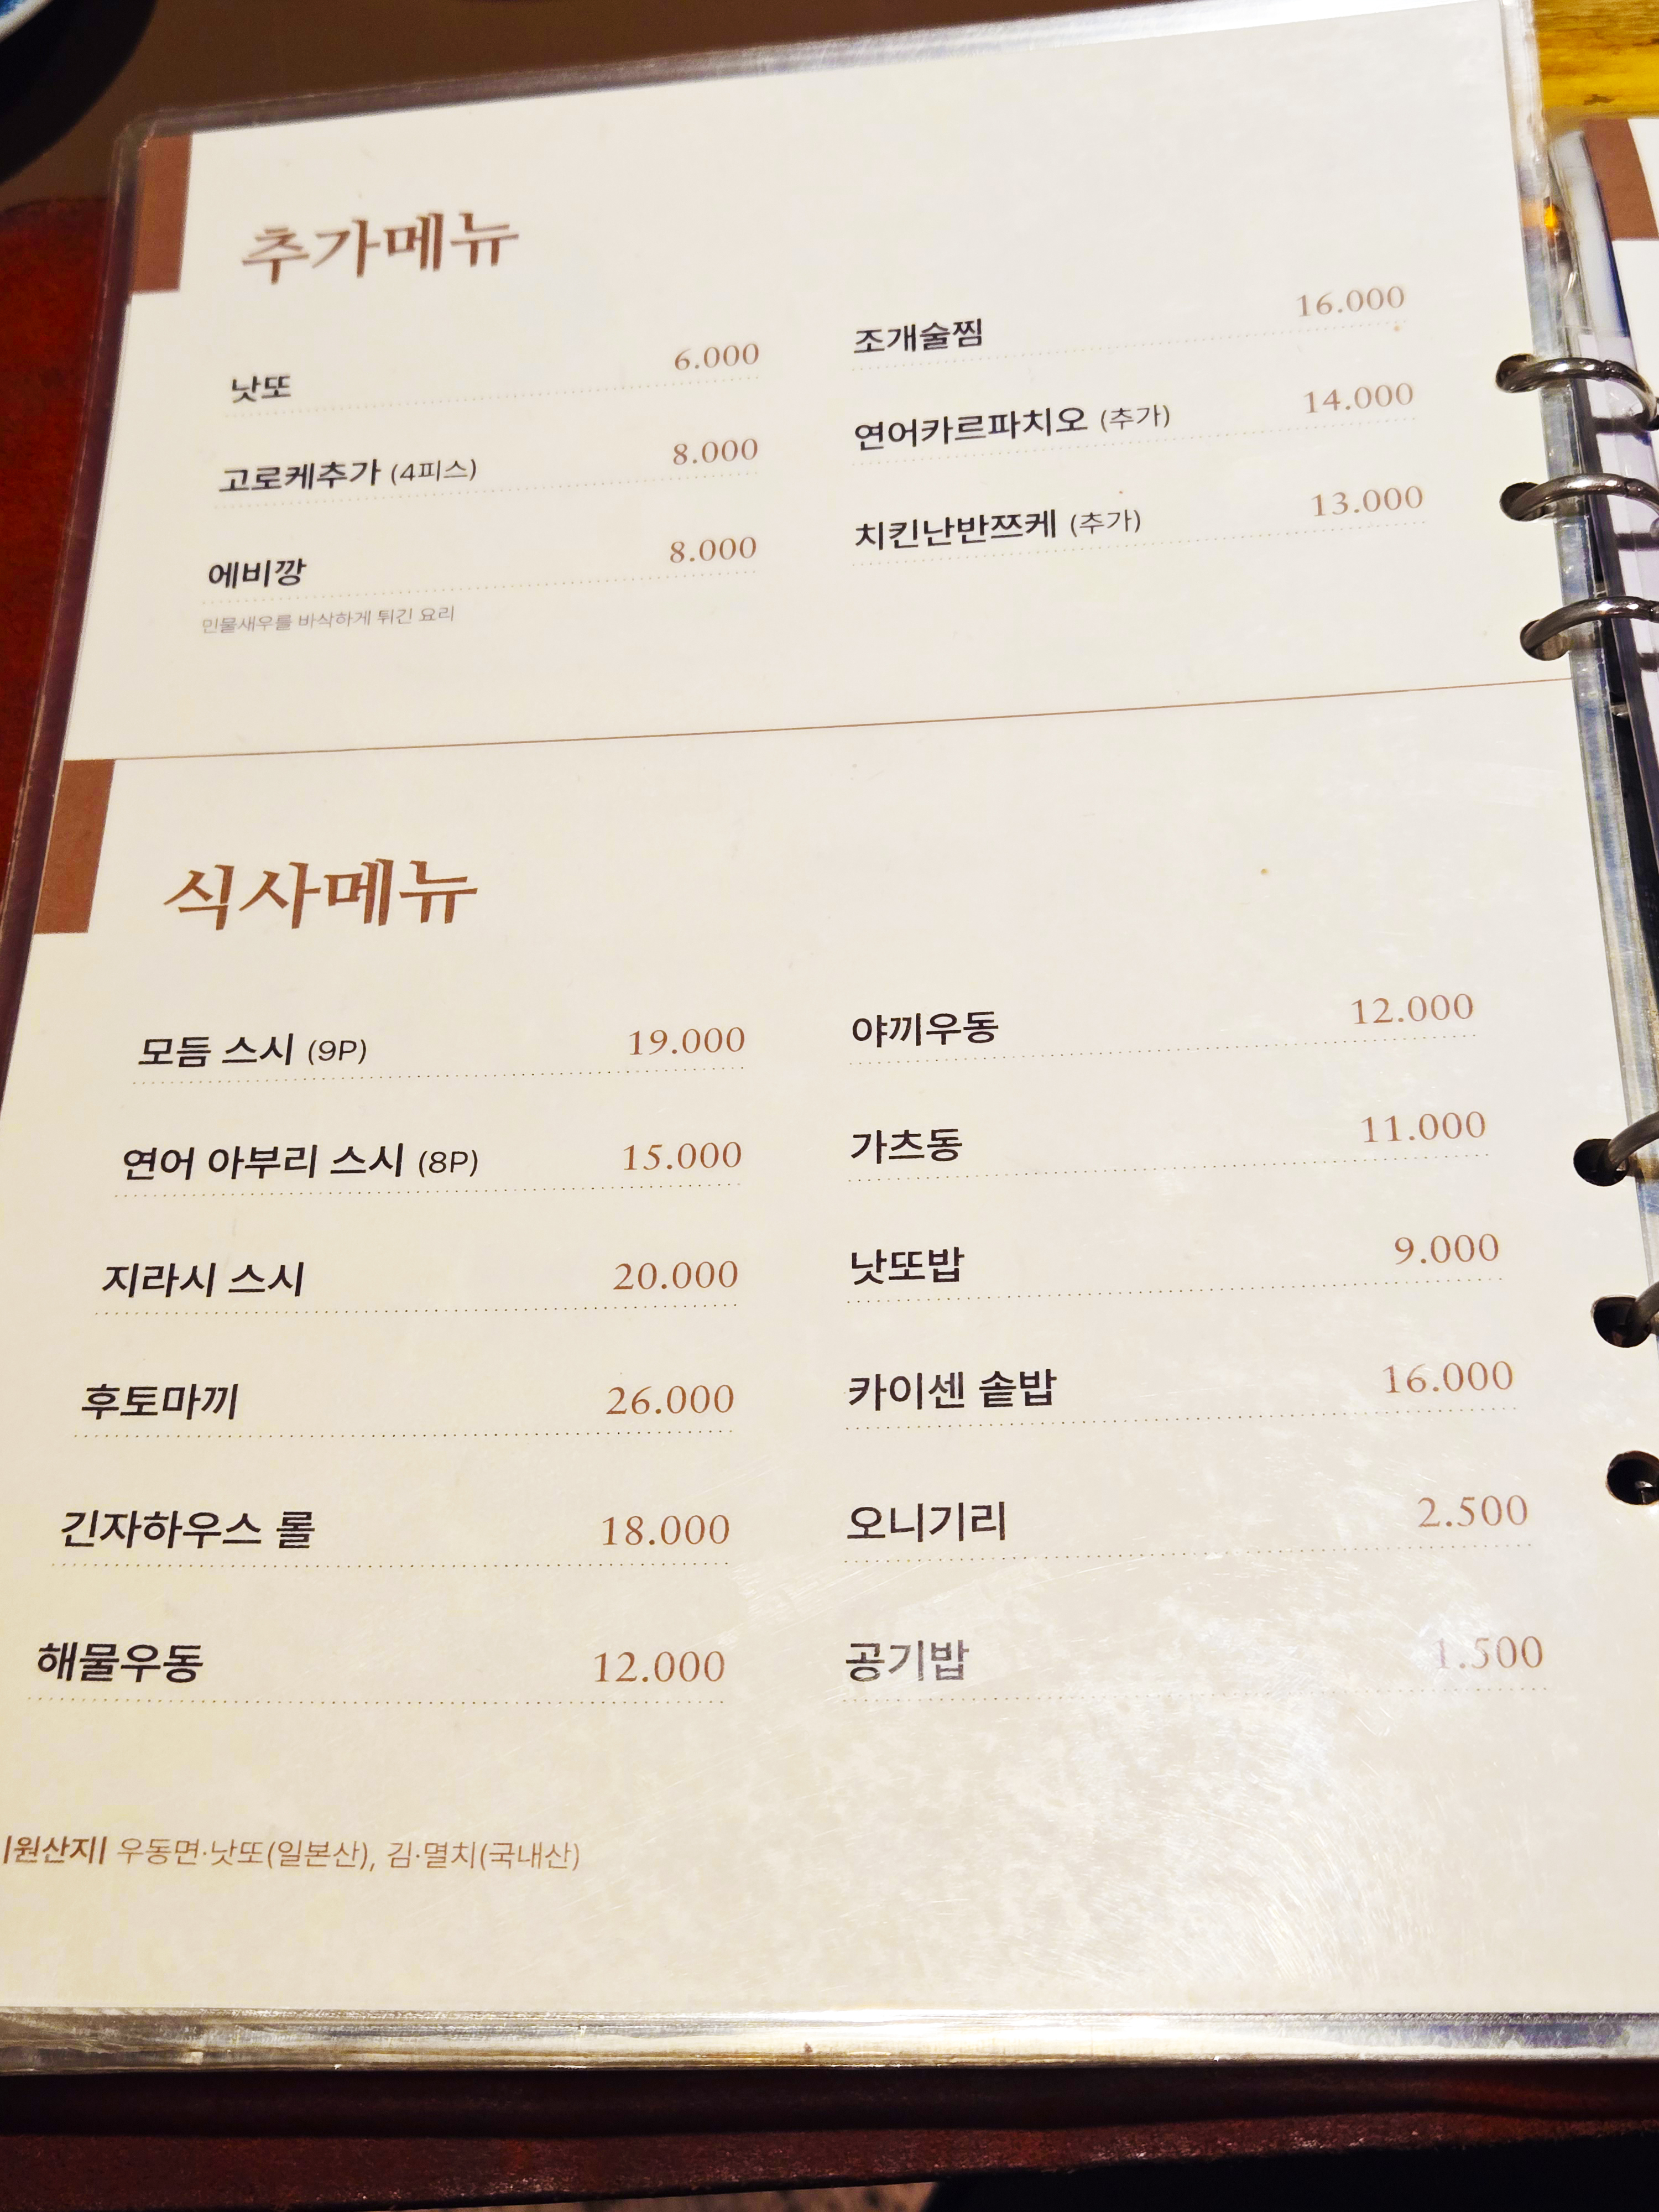 추가메뉴
낫또 6.000
고로케추가 (4피스) 8.000
에비깡 8.000
민물새우를 바삭하게 튀긴 요리
조개술찜 16.000
연어카르파치오 (추가) 14.000
치킨난반쯔케 (추가) 13.000
식사메뉴
모듬 스시 (9P) 19.000
연어 아부리 스시 (8P) 15.000
지라시 스시 20.000
후토마끼 26.000
긴자하우스 롤 18.000
해물우동 12.000
야끼우동 12.000
가츠동 11.000
낫또밥 9.000
카이센 솥밥 16.000
오니기리 2.500
공기밥 1.500
|원산지| 우동면·낫또(일본산), 김·멸치(국내산)